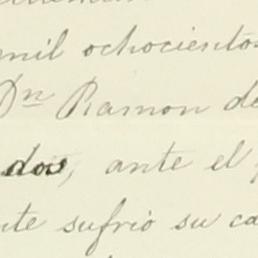 mil ochocientos
Dn Ramon de
dos, ante el
te sufrio su ca